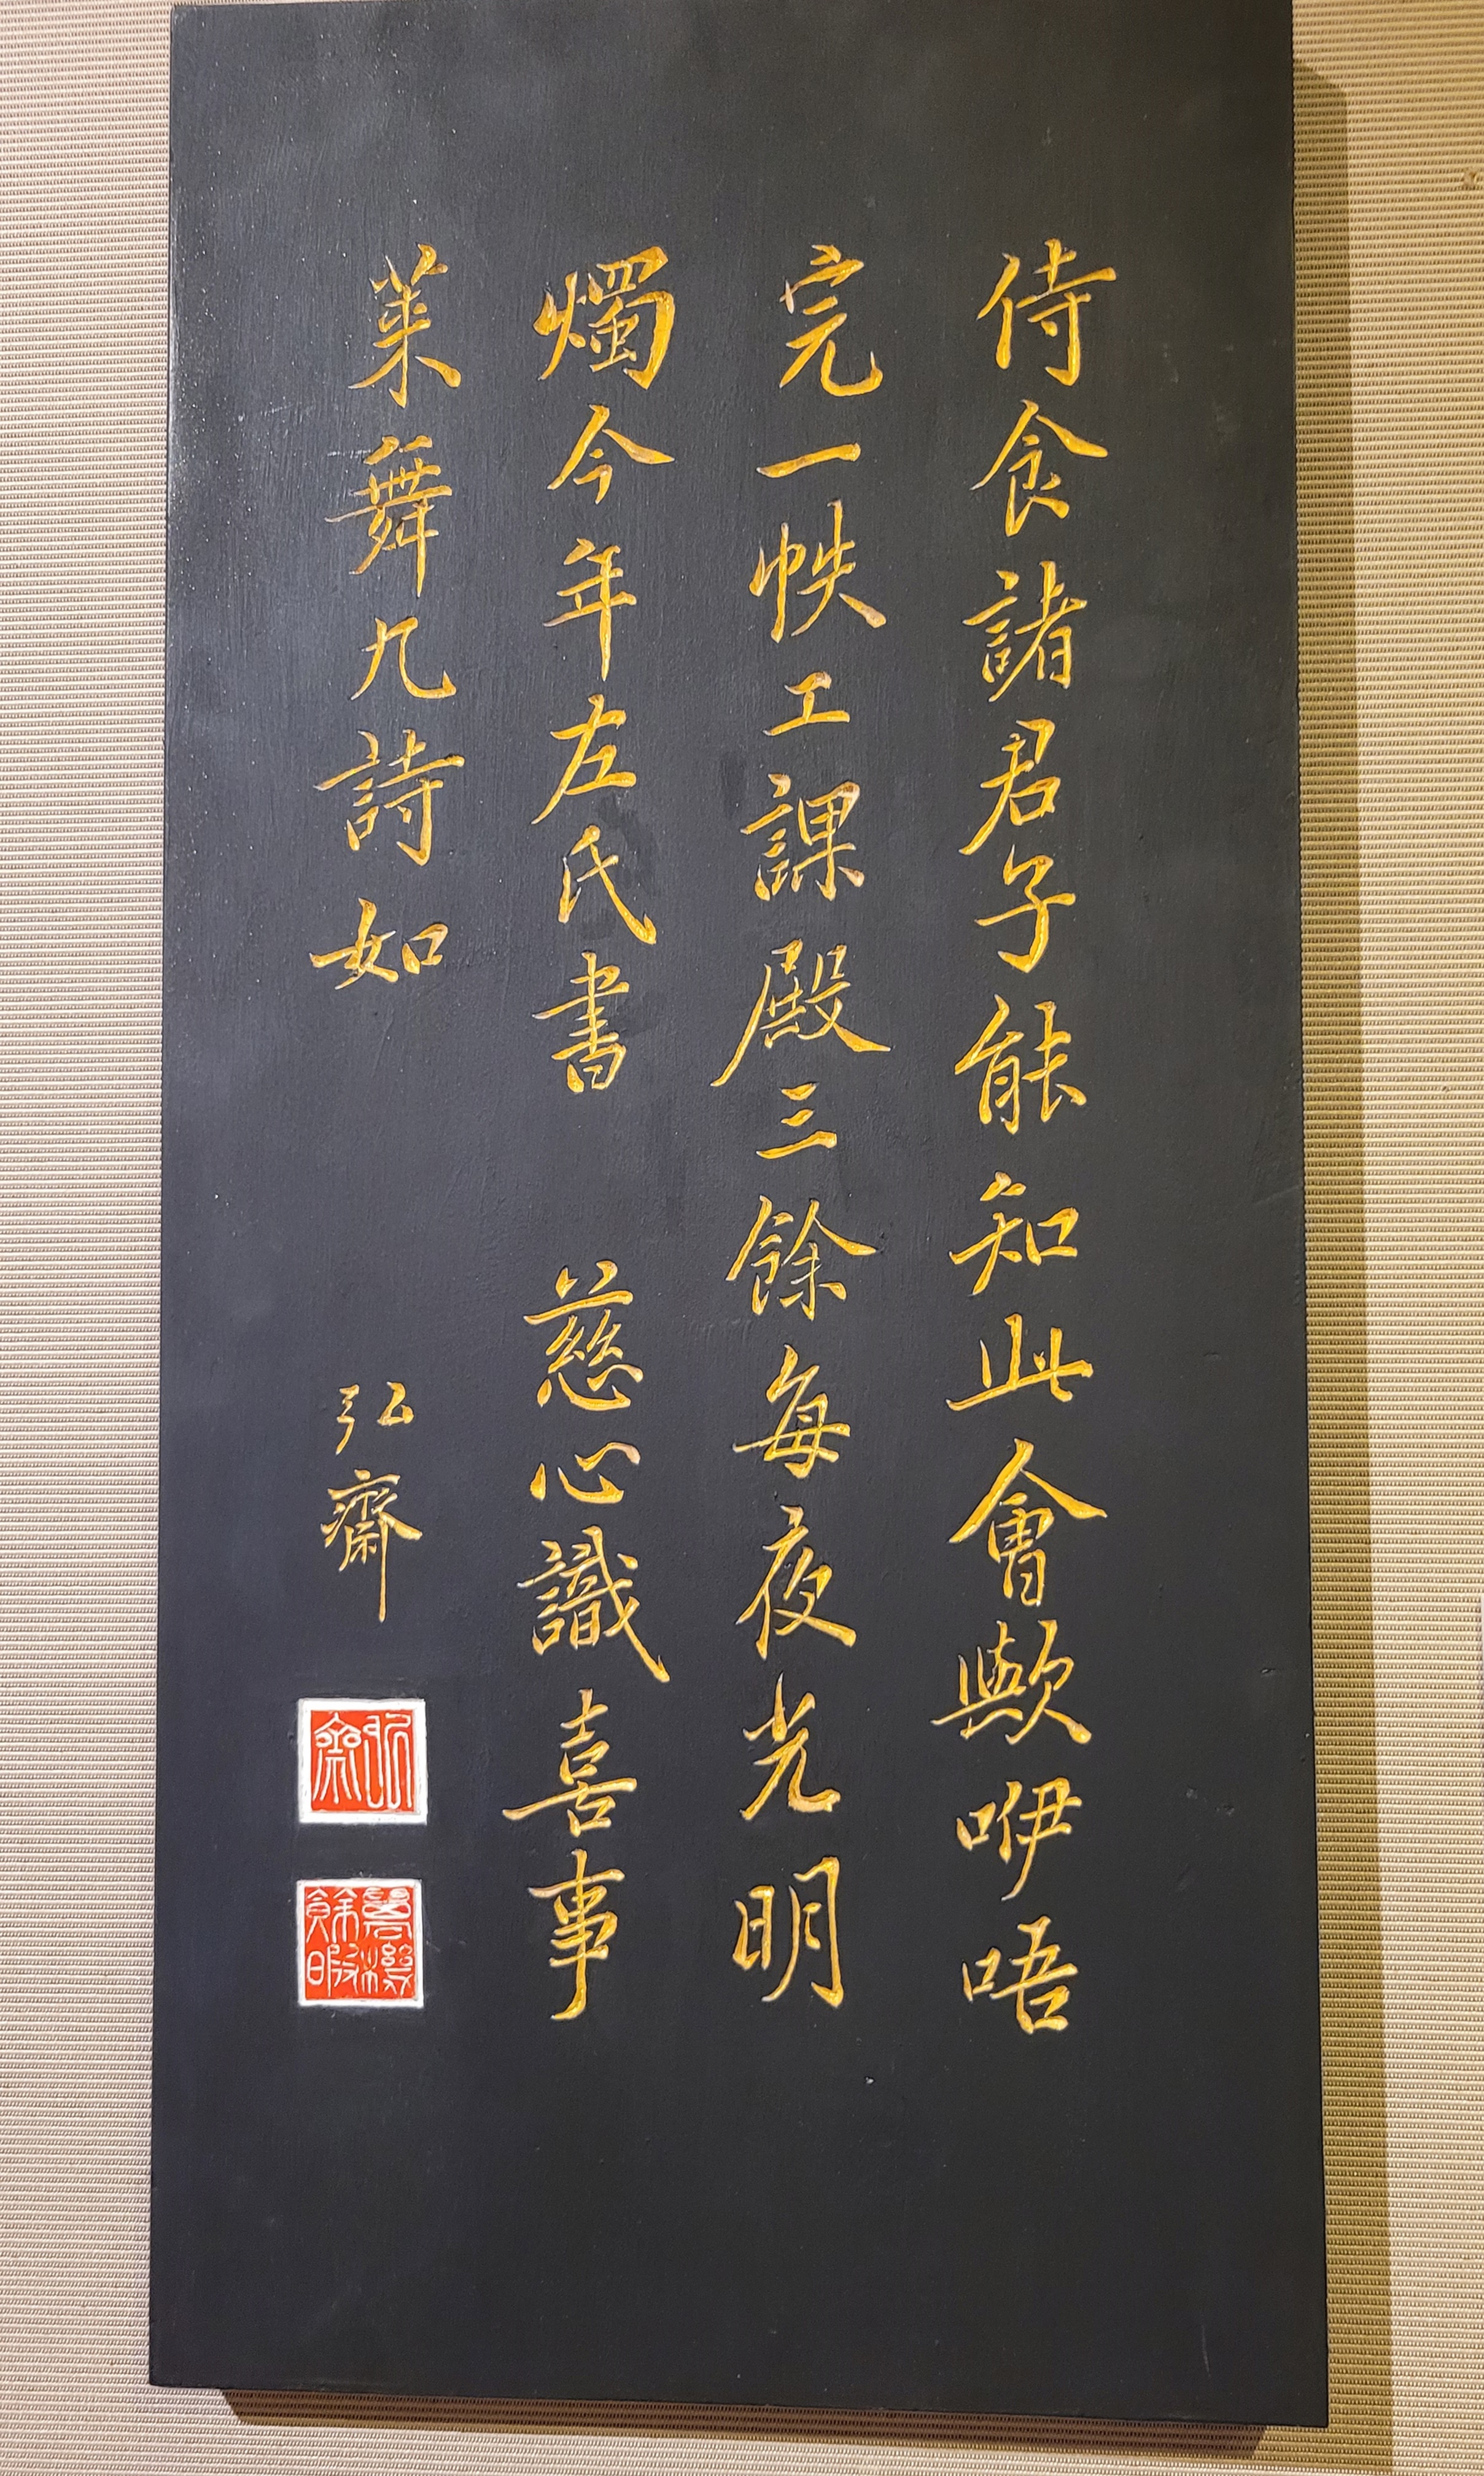 侍食諸君子能知此會歟咿唔
完一帙工課殿三餘每夜光明
燭今年左氏書　慈心識喜事
萊舞九詩如
弘齋
弘齋
萬幾餘暇